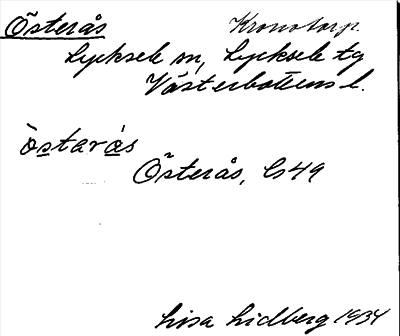 Österås Kronotorp.
Lycksele sn, Lycksele tg
Västerbottens l.
òstarás
Österås, Gs49
Lisa Lidberg 1934